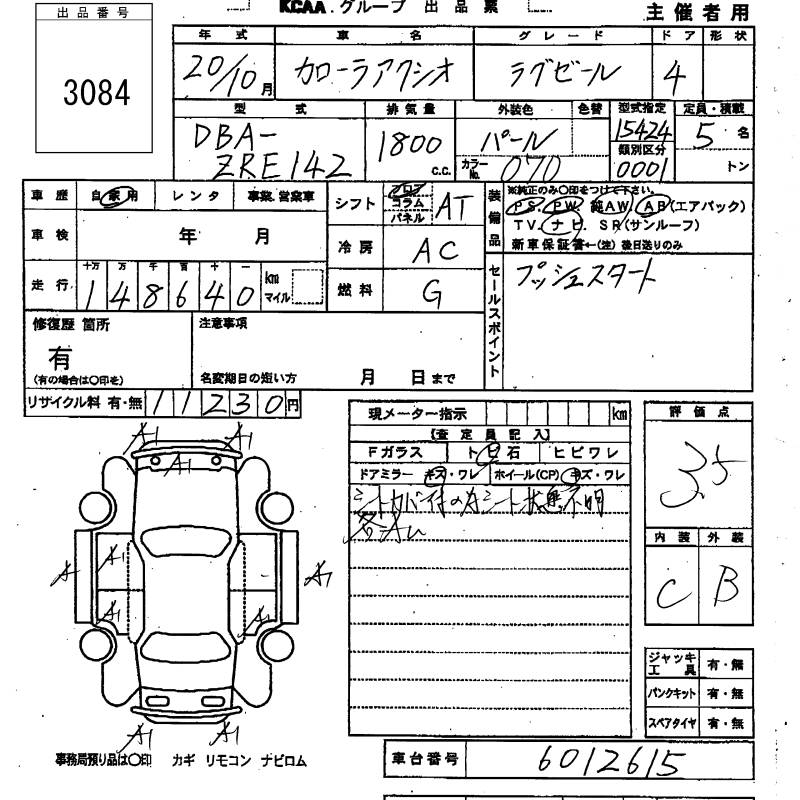 KCAA.グループ 出品票
主催者用
出品番号
3084
年式 車名 グレード ドア 形状
20/10月 カローラアクシオ ラグゼール 4
型式 排気量 外装色 色替 型式指定 定員・積載
DBA-
ZRE142
1800 c.c.
パール
カラーNo. 070
15424
類別区分
0001
5名
トン
車歴 自家用 レンタ 事業.営業車
シフト フロア コラム パネル AT
装備品
※純正のみ〇印をつけて下さい。
PS. PW 純AW AB(エアバック)
TV. ナビ. SR(サンルーフ)
新車保証書←(注)後日送りのみ
車検 年 月
冷房 AC
走行 十万 万 千 百 十 一
148640 km マイル
燃料 G
セールスポイント
プッシュスタート
修復歴 箇所
有
(有の場合は〇印を)
注意事項
名変期日の短い方 月 日まで
リサイクル料 有・無 11230円
現メーター指示 km
【査定員記入】
Fガラス ト ビ 石 ヒビワレ
ドアミラー キズ・ワレ ホイール(CP) キズ・ワレ
シートカバー付の為シート状態不明
評価点
3.5
内装 外装
C B
A1 A1
A1
A1
A A1
A1 A1
A1 A1
ジャッキ工具 有・無
パンクキット 有・無
スペアタイヤ 有・無
事務局預り品は〇印 カギ リモコン ナビロム
車台番号 6012615